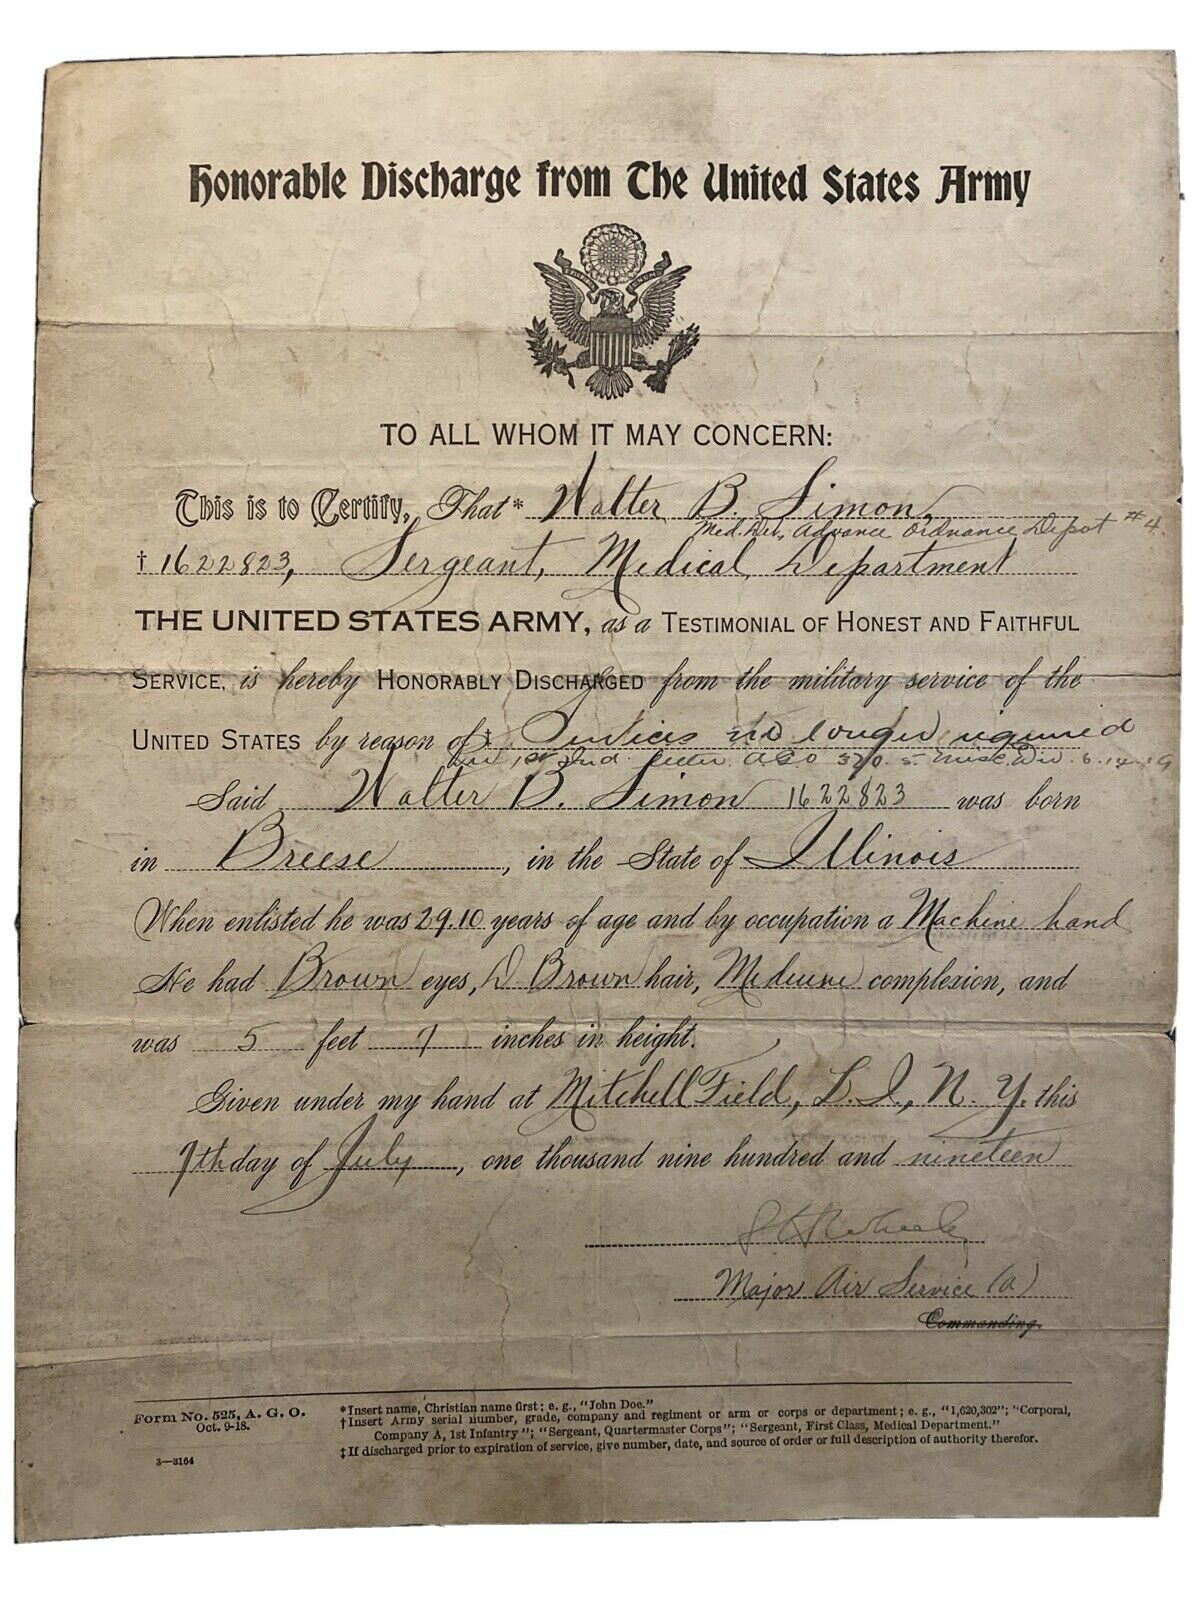 Honorable Discharge from The United States Army
TO ALL WHOM IT MAY CONCERN:
This is to Certify, That* Walter B. Simon
Med. Det, Advance Ordnance Depot #4.
†1622823, Sergeant, Medical Department
THE UNITED STATES ARMY, as a TESTIMONIAL OF HONEST AND FAITHFUL
SERVICE, is hereby HONORABLY DISCHARGED from the military service of the
UNITED STATES by reason of ‡ Services no longer required
1st Ind. AGO 370.5 Misc. Div. 6.14.19
Said Walter B. Simon 1622823 was born
in Breese, in the State of Illinois
When enlisted he was 29.10 years of age and by occupation a Machine hand
He had Brown eyes, D. Brown hair, Medium complexion, and
was 5 feet 7 inches in height.
Given under my hand at Mitchell Field, L. I., N. Y. this
7th day of July, one thousand nine hundred and nineteen
Major Air Service (a)
Commanding.
Form No. 525, A. G. O.
Oct. 9-18.
3—3164
*Insert name, Christian name first; e. g., "John Doe."
†Insert Army serial number, grade, company and regiment or arm or corps or department; e. g., "1,620,302"; "Corporal,
Company A, 1st Infantry"; "Sergeant, Quartermaster Corps"; "Sergeant, First Class, Medical Department."
‡If discharged prior to expiration of service, give number, date, and source of order or full description of authority therefor.